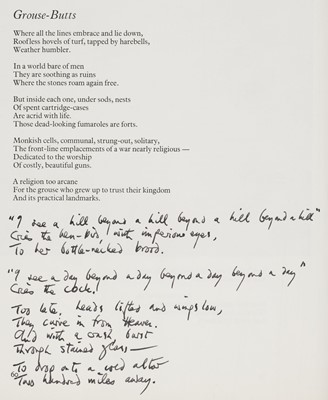 Grouse-Butts
Where all the lines embrace and lie down,
Roofless hovels of turf, tapped by harebells,
Weather humbler.
In a world bare of men
They are soothing as ruins
Where the stones roam again free.
But inside each one, under sods, nests
Of spent cartridge-cases
Are acrid with life.
Those dead-looking fumaroles are forts.
Monkish cells, communal, strung-out, solitary,
The front-line emplacements of a war nearly religious —
Dedicated to the worship
Of costly, beautiful guns.
A religion too arcane
For the grouse who grew up to trust their kingdom
And its practical landmarks.
"I see a hill beyond a hill beyond a hill beyond a hill"
Cries the hen-bird, with imperious eyes,
To her bottle-necked brood.
"I see a day beyond a day beyond a day beyond a day"
Cries the cock.
Too late, heads lifted and wings low,
They curve in from Heaven.
And with a crash burst
Through stained glass —
To drop onto a cold altar
60
Two hundred miles away.